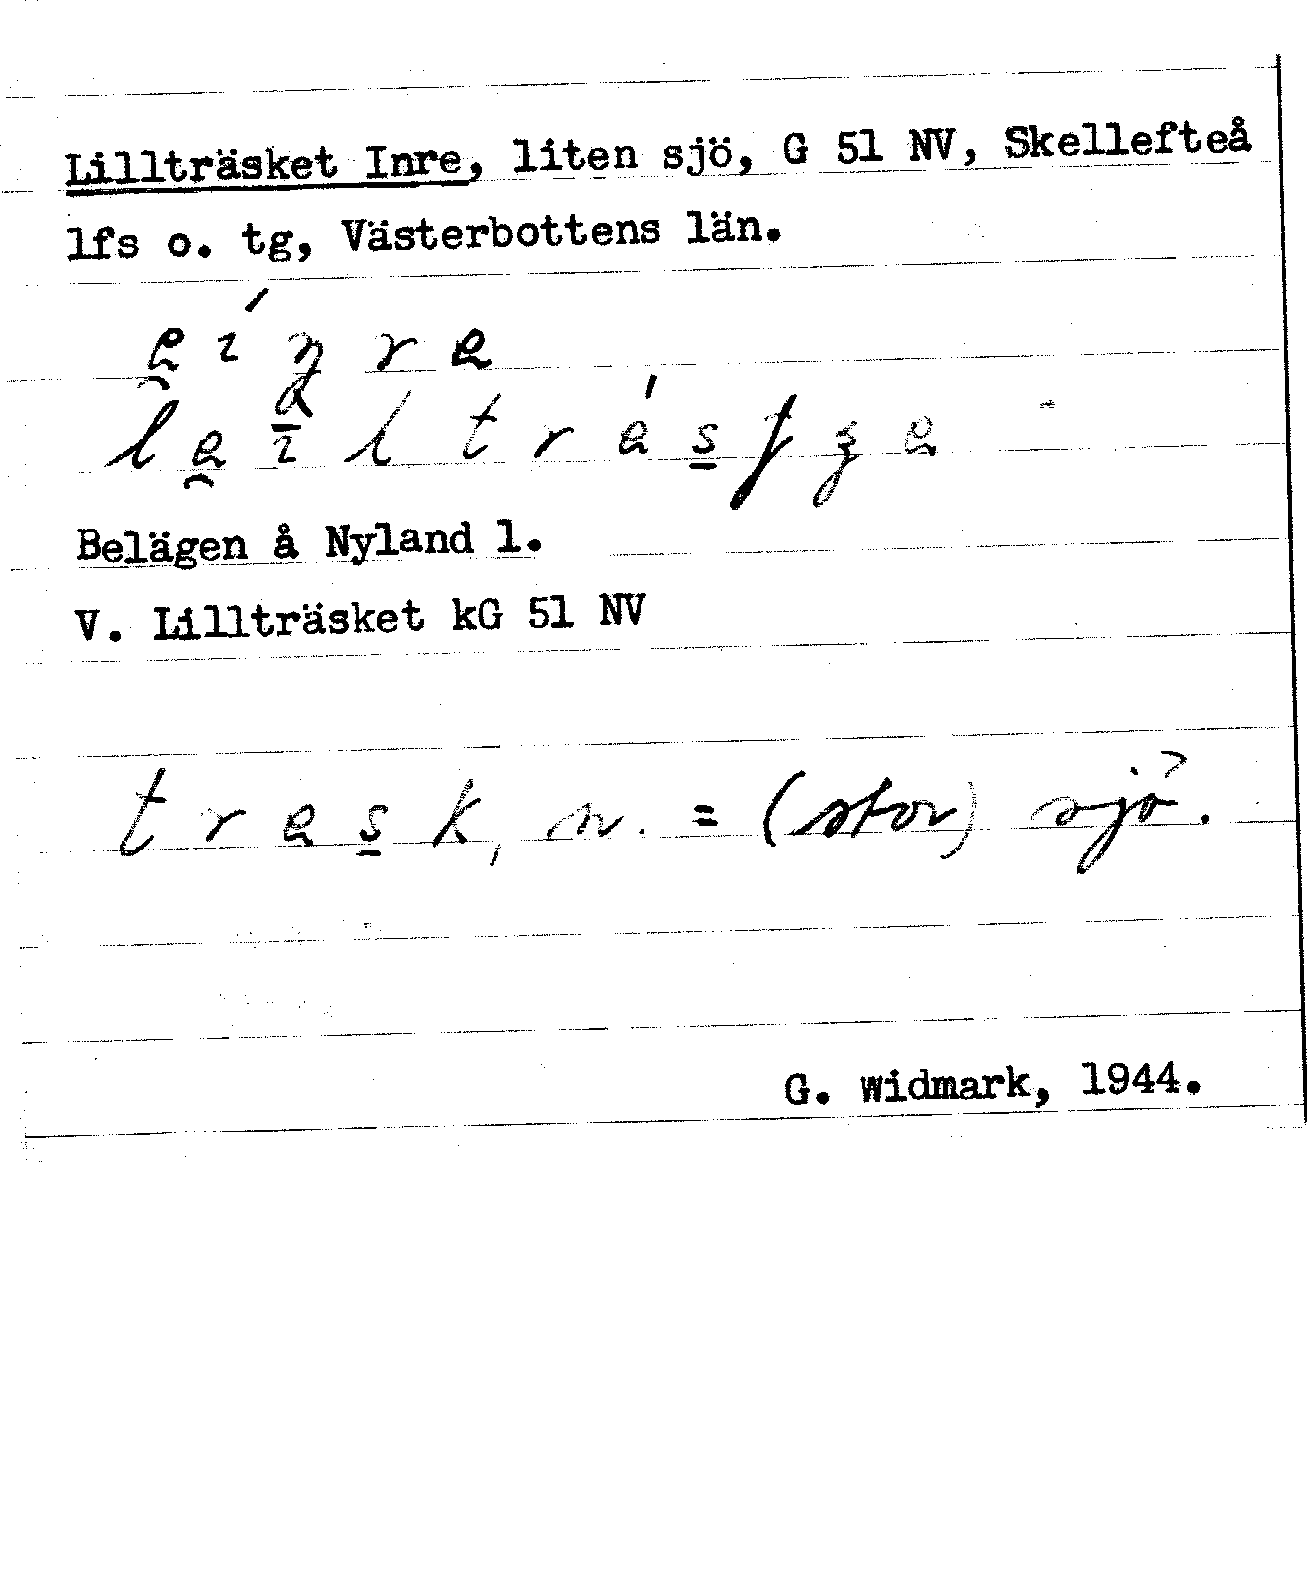 Lillträsket Inre, liten sjö, G 51 NV, Skellefteå
lfs o. tg, Västerbottens län.
Belägen å Nyland 1.
V. Lillträsket kG 51 NV
trask, n. = (stor) sjö.
G. Widmark, 1944.